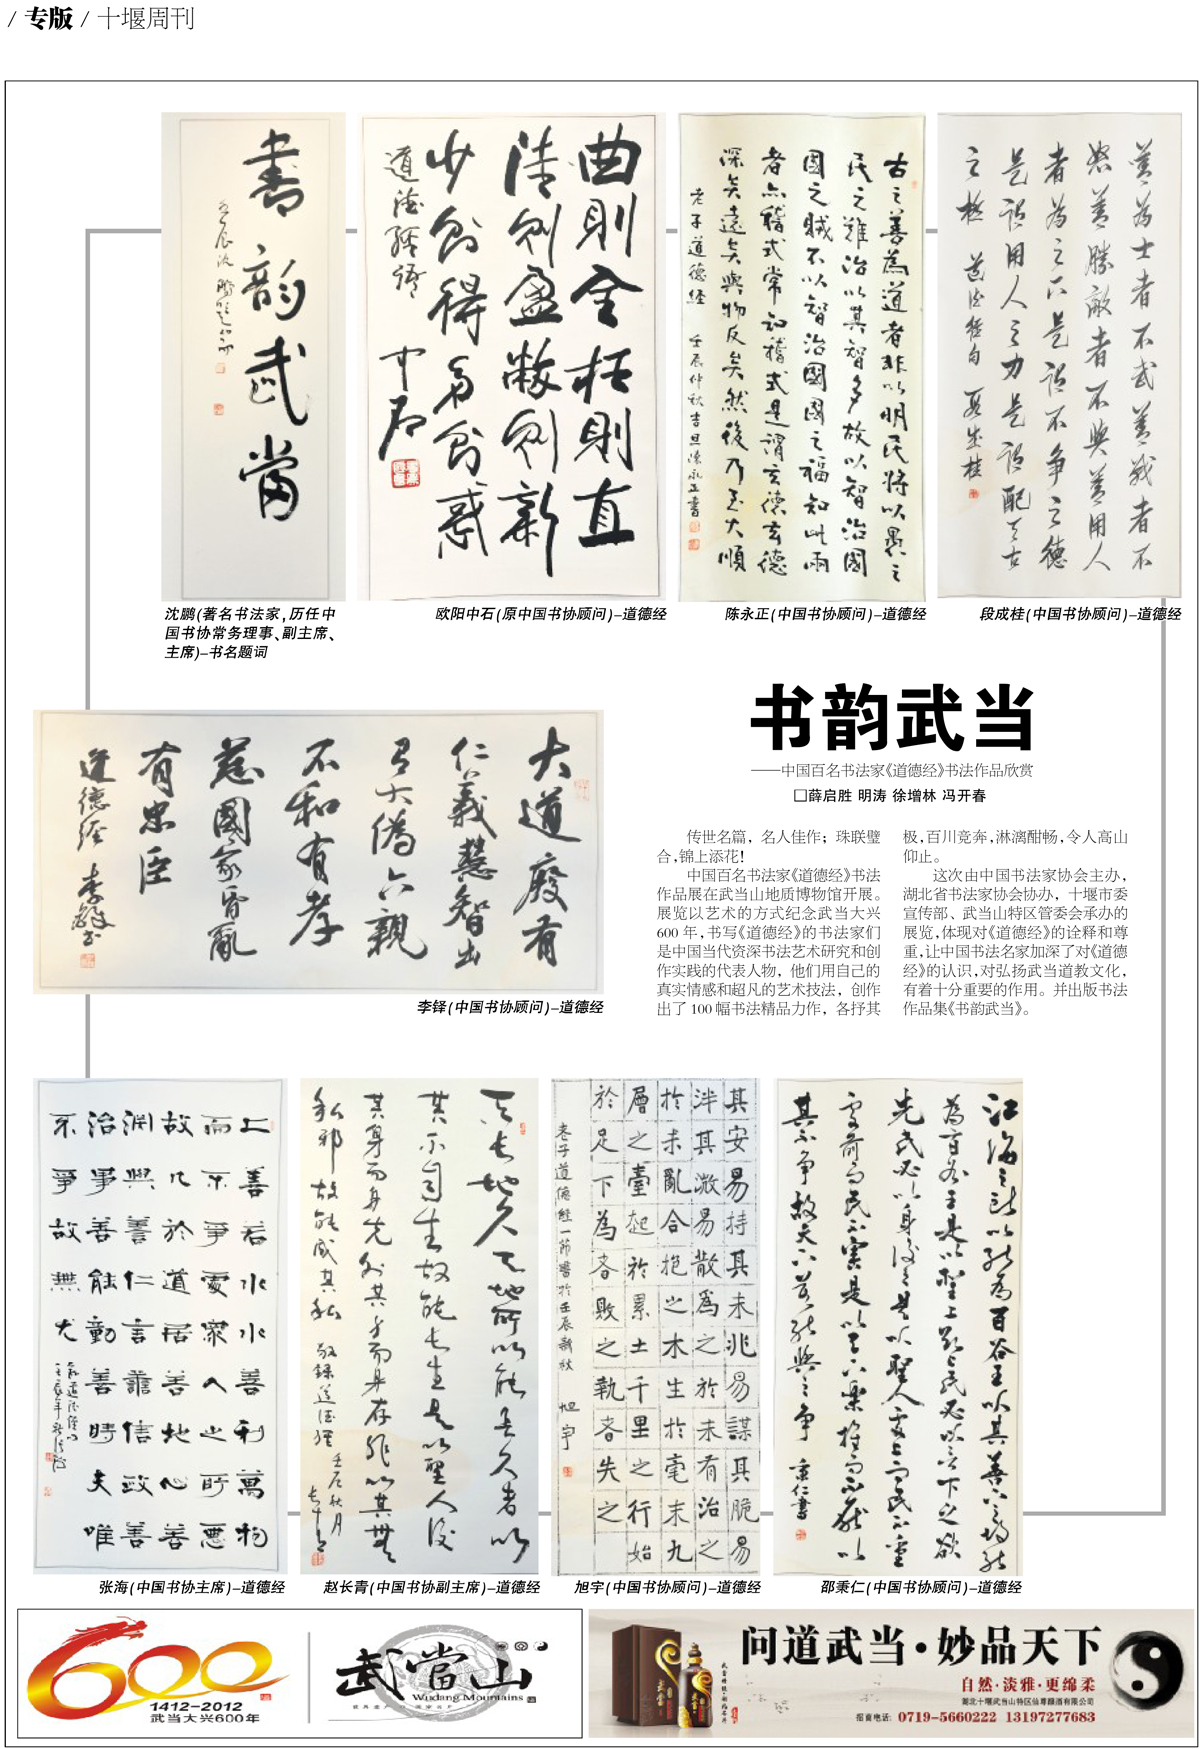 / 专版 / 十堰周刊
書韵武當
曲則全枉則直
洼則盈敝則新
少則得多則惑
道德經語
中石
古之善為道者非以明民将以愚之
民之難治以其智多故以智治國
國之賊不以智治國國之福知此兩
者亦稽式常知稽式是謂玄德玄德
深矣遠矣與物反矣然後乃至大順
老子道德经
善為士者不武善戰者不
怒善勝敵者不與善用人
者為之下是謂不争之德
是謂用人之力是謂配天古
之極 道德經句 段成桂
沈鹏(著名书法家,历任中
国书协常务理事、副主席、
主席)–书名题词
欧阳中石(原中国书协顾问)–道德经
陈永正(中国书协顾问)–道德经
段成桂(中国书协顾问)–道德经
书韵武当
——中国百名书法家《道德经》书法作品欣赏
□薛启胜 明涛 徐增林 冯开春
传世名篇，名人佳作；珠联璧
合,锦上添花!
中国百名书法家《道德经》书法
作品展在武当山地质博物馆开展。
展览以艺术的方式纪念武当大兴
600 年,书写《道德经》的书法家们
是中国当代资深书法艺术研究和创
作实践的代表人物，他们用自己的
真实情感和超凡的艺术技法，创作
出了 100 幅书法精品力作，各抒其
极,百川竞奔,淋漓酣畅,令人高山
仰止。
这次由中国书法家协会主办，
湖北省书法家协会协办，十堰市委
宣传部、武当山特区管委会承办的
展览,体现对《道德经》的诠释和尊
重,让中国书法名家加深了对《道德
经》的认识,对弘扬武当道教文化,
有着十分重要的作用。并出版书法
作品集《书韵武当》。
大道廢有
仁義慧智出
有大偽六親
不和有孝
慈國家昏亂
有忠臣
道德经 李鐸书
李铎(中国书协顾问)–道德经
上善若水水善利萬物
而不爭處衆人之所惡
故几於道居善地心善
淵與善仁言善信政善
治事善能動善時夫唯
不爭故無尤
天长地久天地所以能長久者以
其不自生故能长生是以聖人後
其身而身先外其身而身存非以其無
私邪故能成其私
其安易持其未兆易謀其脆易
泮其微易散為之於未有治之
於未亂合抱之木生於毫末九
層之臺起於累土千里之行始
於足下為者敗之執者失之
老子道德經一節書於壬辰新秋 旭宇
江海之所以能為百谷王以其善下之故能
為百谷王是以聖人欲上民必以言下之欲
先民必以身後之是以聖人處上而民不重
處前而民不害是以天下樂推而不厭以
其不争故天下莫能與之争 秉仁書
张海(中国书协主席)–道德经
赵长青(中国书协副主席)–道德经
旭宇(中国书协顾问)–道德经
邵秉仁(中国书协顾问)–道德经
600
1412-2012
武当大兴600年
武當山
Wudang Mountains
问道武当·妙品天下
自然·淡雅·更绵柔
湖北十堰武当山特区仙尊酿酒有限公司
招商电话: 0719-5660222 13197277683